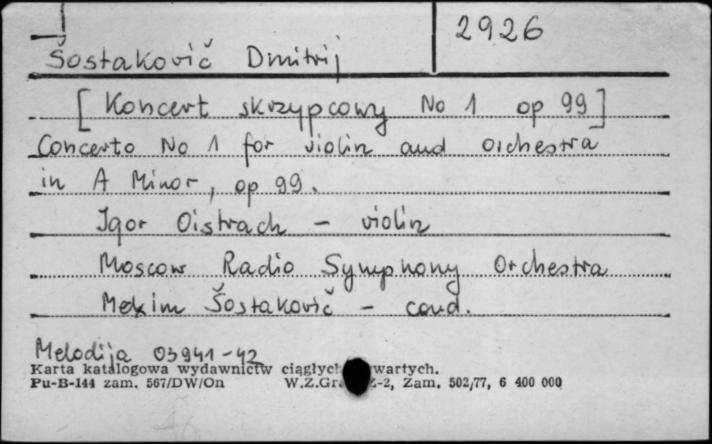 2926
Šostakovič Dmitrij
[Koncert skrzypcowy No 1 op 99]
Concerto No 1 for violin and orchestra
in A Minor, op 99.
Igor Oistrach - violin
Moscow Radio Symphony Orchestra
Meksim Šostakovič - cond.
Melodija 03941-42
Karta katalogowa wydawnictw ciągłych wartych.
Pu-B-144 zam. 567/DW/On W.Z.Gr Z-2, Zam. 502/77, 6 400 000